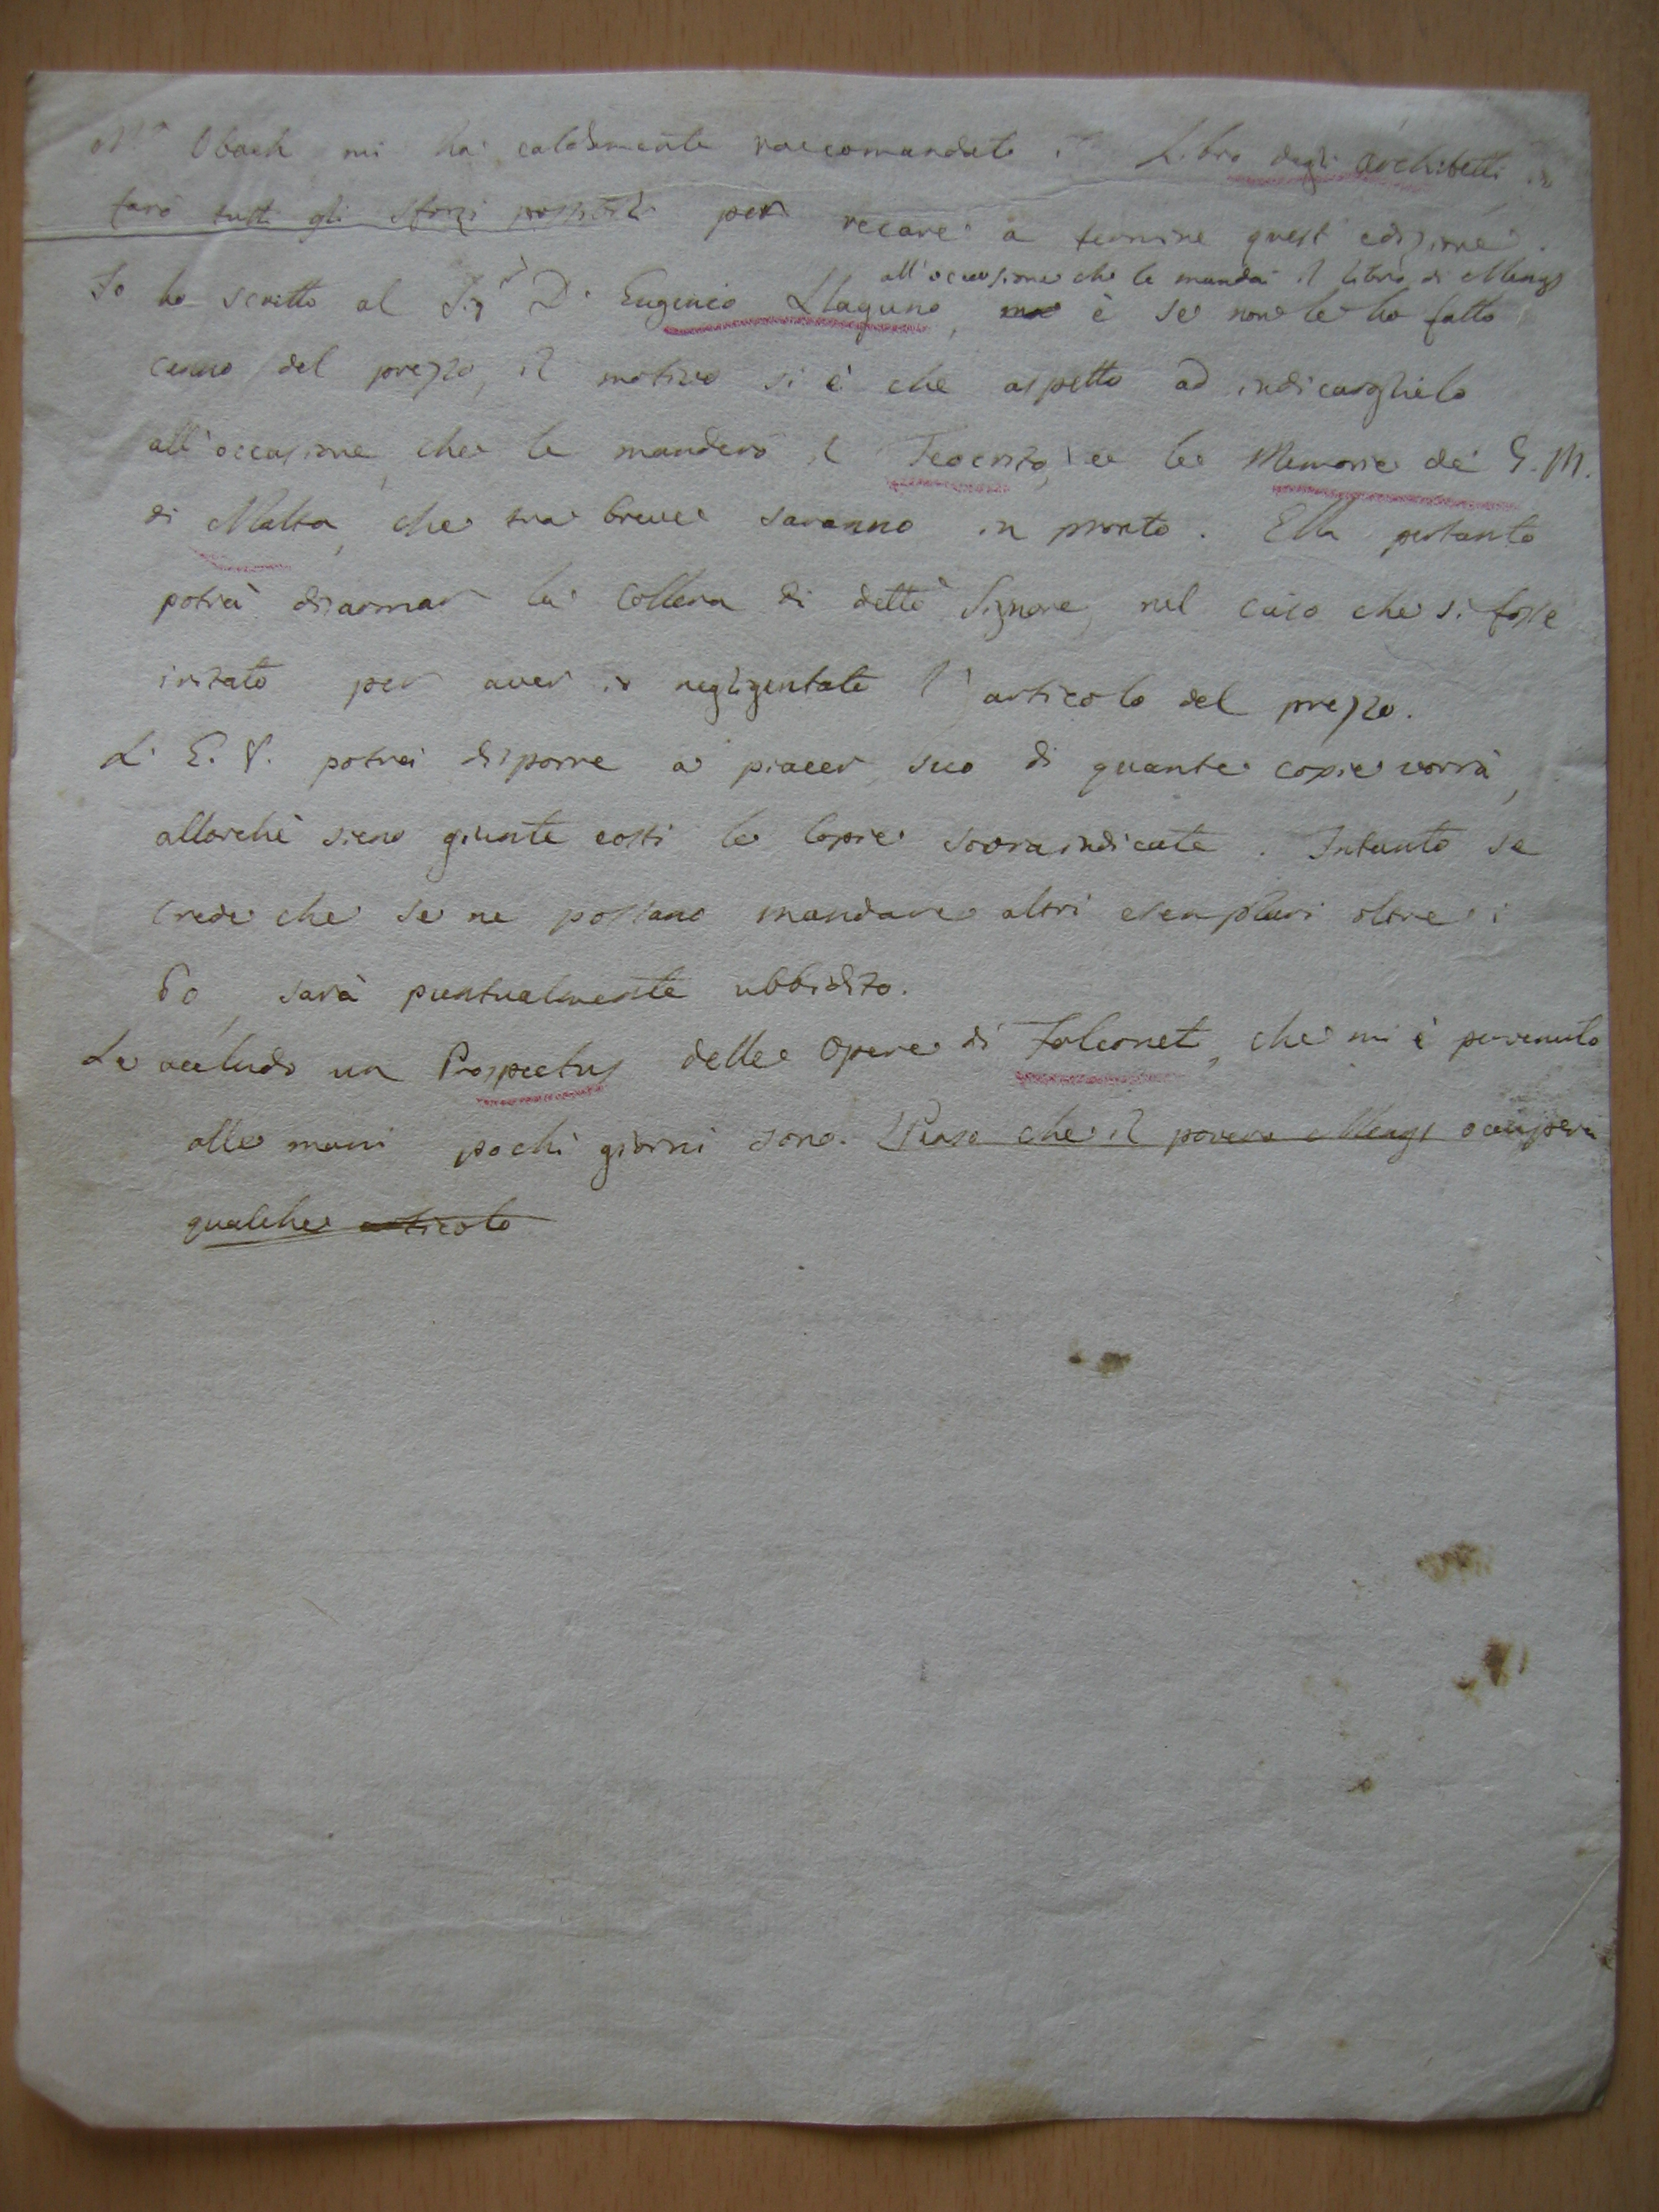 Mr Ubach mi ha caldamente raccomandato il Libro degli Architetti io
farò tutti gli sforzi possibili per recare a termine quest'edizione.
all'occasione che le mandai il libro di Mengs
Io ho scritto al Sigr Dn Eugenio Llaguno, ma è se non le ho fatto
cenno del prezzo, il motivo si è che aspetto ad indicarglielo
all'occasione, che le manderò il Teocrito, e le Memorie de' G. M.
di Malta, che tra breve saranno in pronto. Ella pertanto
potrà disarmar la collera di detto Signore, nel caso che si fosse
irritato per aver io negligentato l'articolo del prezzo.
L' E. V. potrà disporre a piacer suo di quante copie vorrà,
allorchè sieno giunte costì le Copie sovraindicate. Intanto se
crede che se ne possano mandare altri esemplari oltre i
60, sarà puntualmente ubbidito.
Le accludo un Prospectus delle Opere di Falconet, che mi è pervenuto
alle mani pochi giorni sono. Penso che il povero Mengs occuperà
qualche articolo